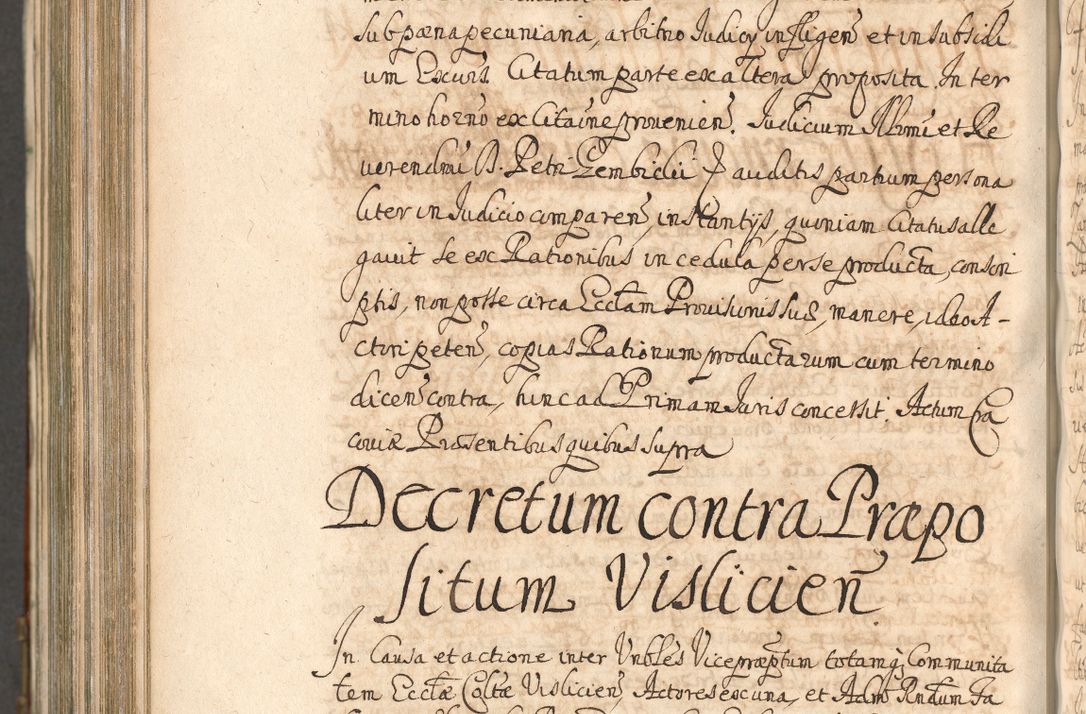 sub pæna pecuniaria, arbitrio Iudicÿ infligen̄ et in subsidi
um Excuīs. Citatum parte ex altera proposita. In ter
mino horno ex Citaīne prouenien̄. Iudicium Illr̄mi et Re
uerendm̄i D. Petri Gembicki auditis partium persona
liter in Iudicio comparen̄, instantijs, quoniam Citatus alle
gauit se ex Rationibus in cedula per se producta, conscri
ptis, non posse circa Eccl̄am Prouisionis suæ, manere, ideo A-
ctori peten̄, copias Rationum productarum cum termino
dicen̄ contra, hinc ad Primam Iuris concessit. Actum Cra
couiæ Præsentibus quibus supra
Decretum contra Præpo
situm Vislicien̄
In Causa et actione inter Vnbles Vicepræptum totamq; Communita
tem Eccl̄æ Coll̄tæ Vislicien̄, Actores ex una, et Adm̄ Rndum Ia